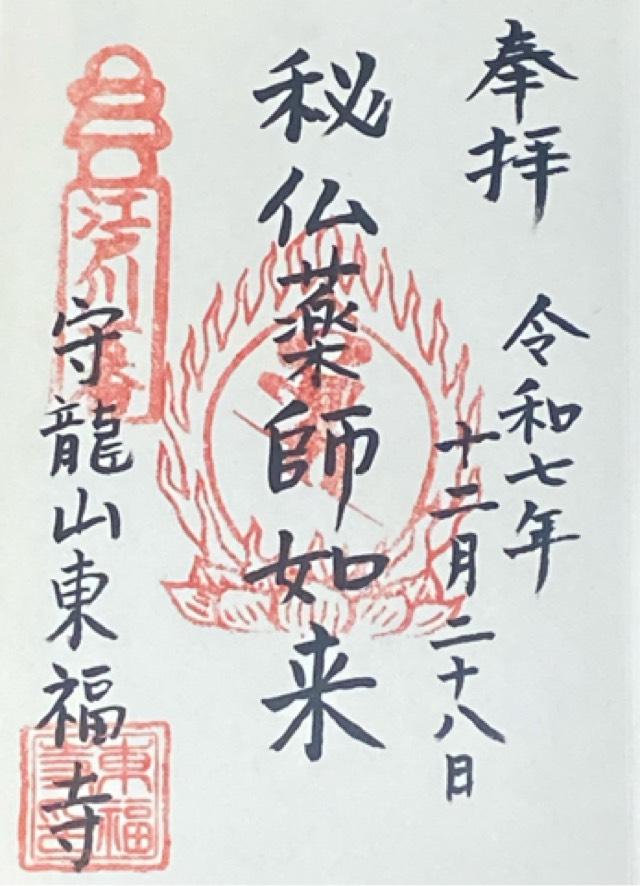 奉拝
令和七年
十二月二十八日
秘仏薬師如来
守龍山東福寺
江戸川
東福